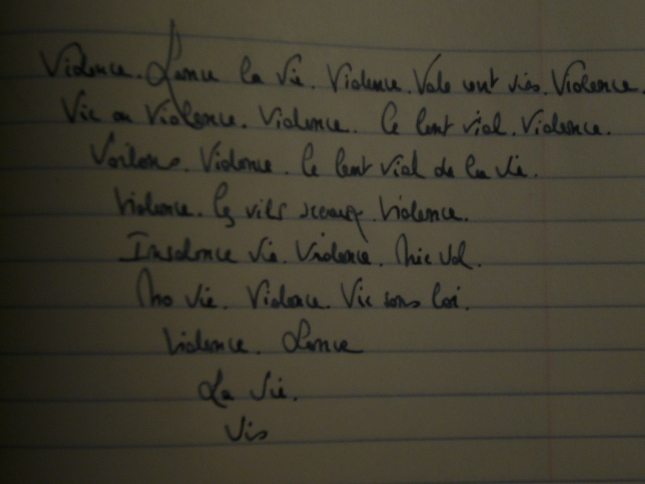 Violence. Lance la vie. Violence. Vole cent vies. Violence.
Vie ou Violence. Violence. Ce lent viol. Violence.
Voilons. Violence. Ce lent viol de la vie.
Violence. Les vils sceaux. Violence.
Insolence vie. Violence. vol.
Vie. Violence. Vie sans loi.
Violence. Lance
La vie.
Vis